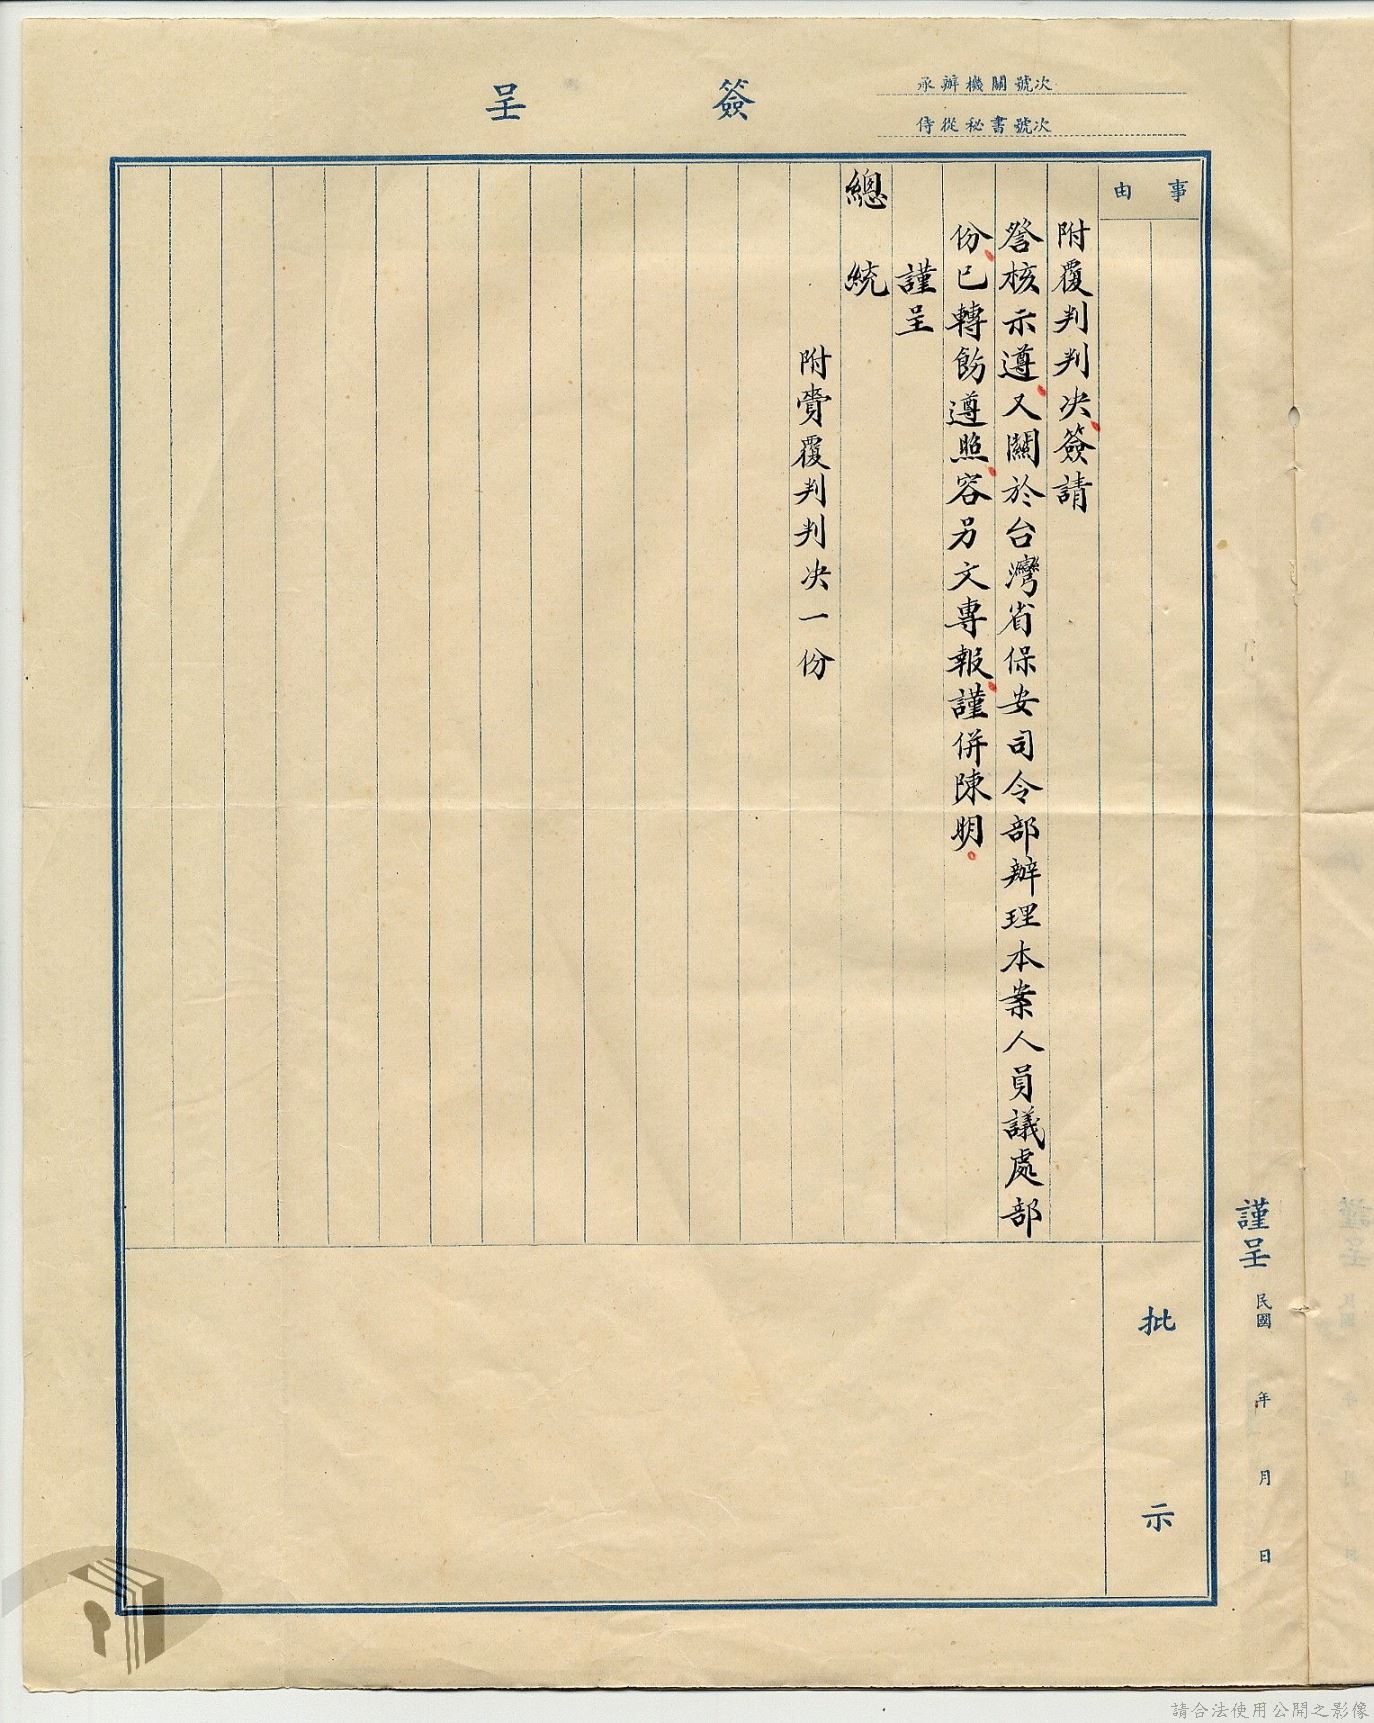 簽呈
承辦機關號次
侍從秘書號次
事由
附覆判判决、簽請
詧核示遵、又關於台灣省保安司令部辦理本案人員議處部
份、已轉飭遵照、容另文專報、謹併陳明。
謹呈
總統
附賷覆判判决一份
批示
謹呈 民國 年 月 日
請合法使用公開之影像